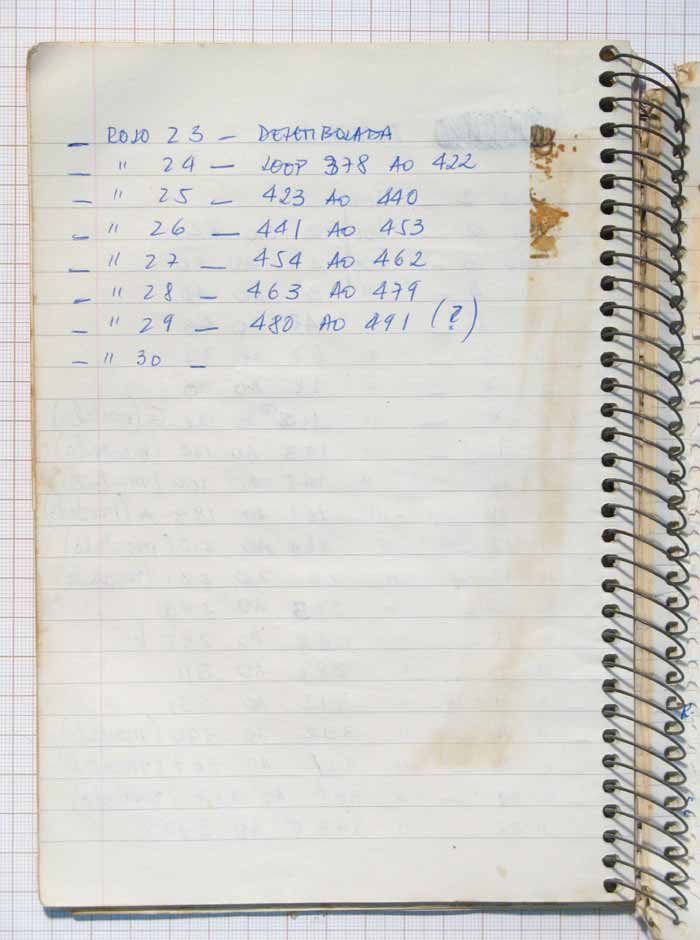 — ROLO 23 — DESEMBOLADA
— " 24 — LOOP 378 AO 422
— " 25 — 423 AO 440
— " 26 — 441 AO 453
— " 27 — 454 AO 462
— " 28 — 463 AO 479
— " 29 — 480 AO 491 (?)
— " 30 —